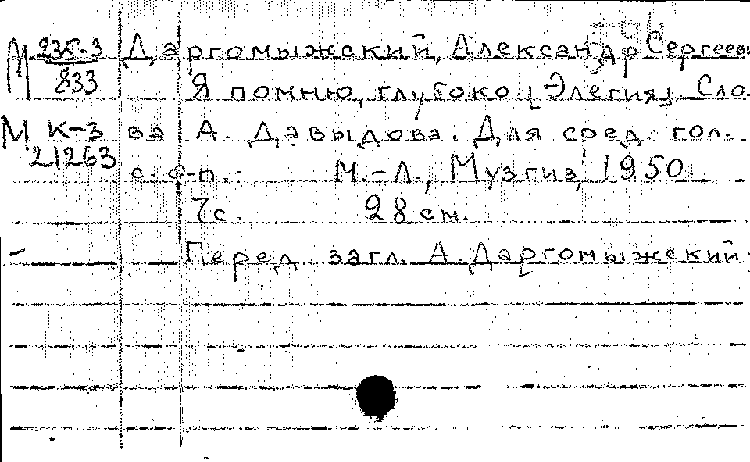 М 235-3 Даргомыжский, Александр Сергееви
833 Я помню, глубоко [Элегия]. Сло-
М К-3 ва А. Давыдова. Для сред. гол.
21263 с ф-п. М.-Л., Музгиз, 1950
7 с. 28 см.
Перед загл. А. Даргомыжский